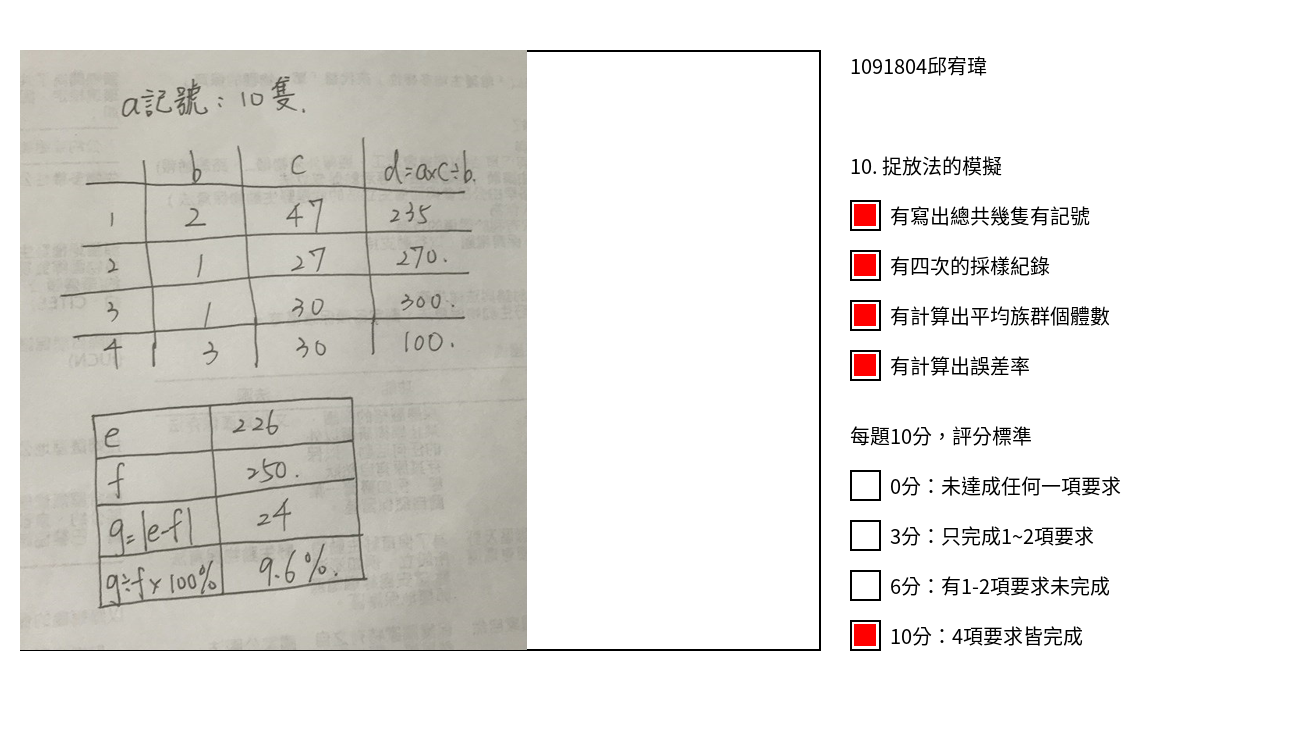 a記號：10隻.
b c d=a×c÷b.
1 2 47 235
2 1 27 270.
3 1 30 300.
4 3 30 100.
e 226
f 250.
g=|e-f| 24
g÷f×100% 9.6%.
1091804邱宥瑋
10. 捉放法的模擬
有寫出總共幾隻有記號
有四次的採樣紀錄
有計算出平均族群個體數
有計算出誤差率
每題10分，評分標準
0分：未達成任何一項要求
3分：只完成1~2項要求
6分：有1-2項要求未完成
10分：4項要求皆完成